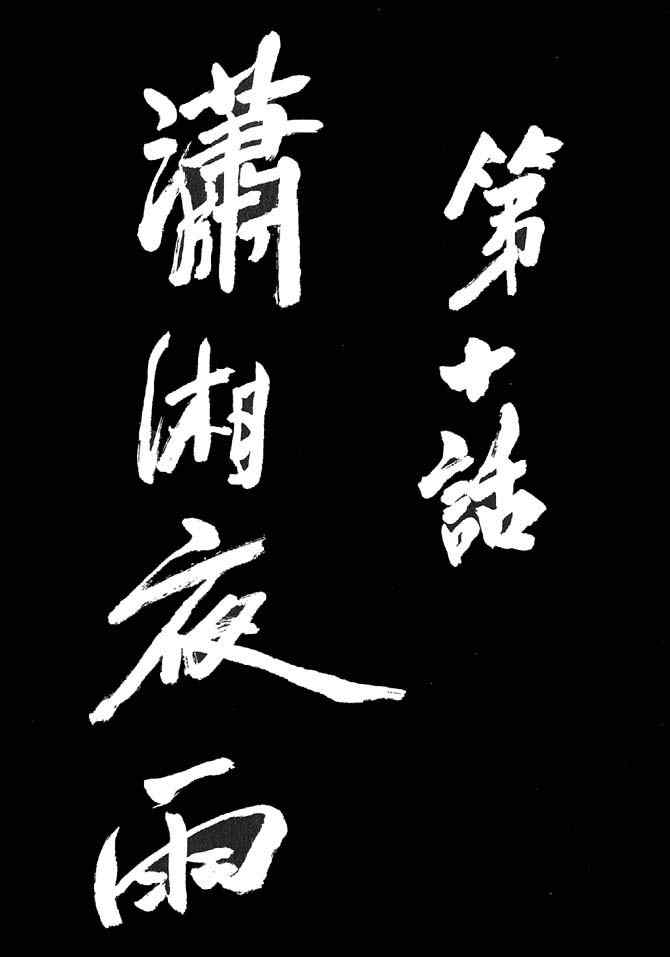 第十話
瀟湘夜雨